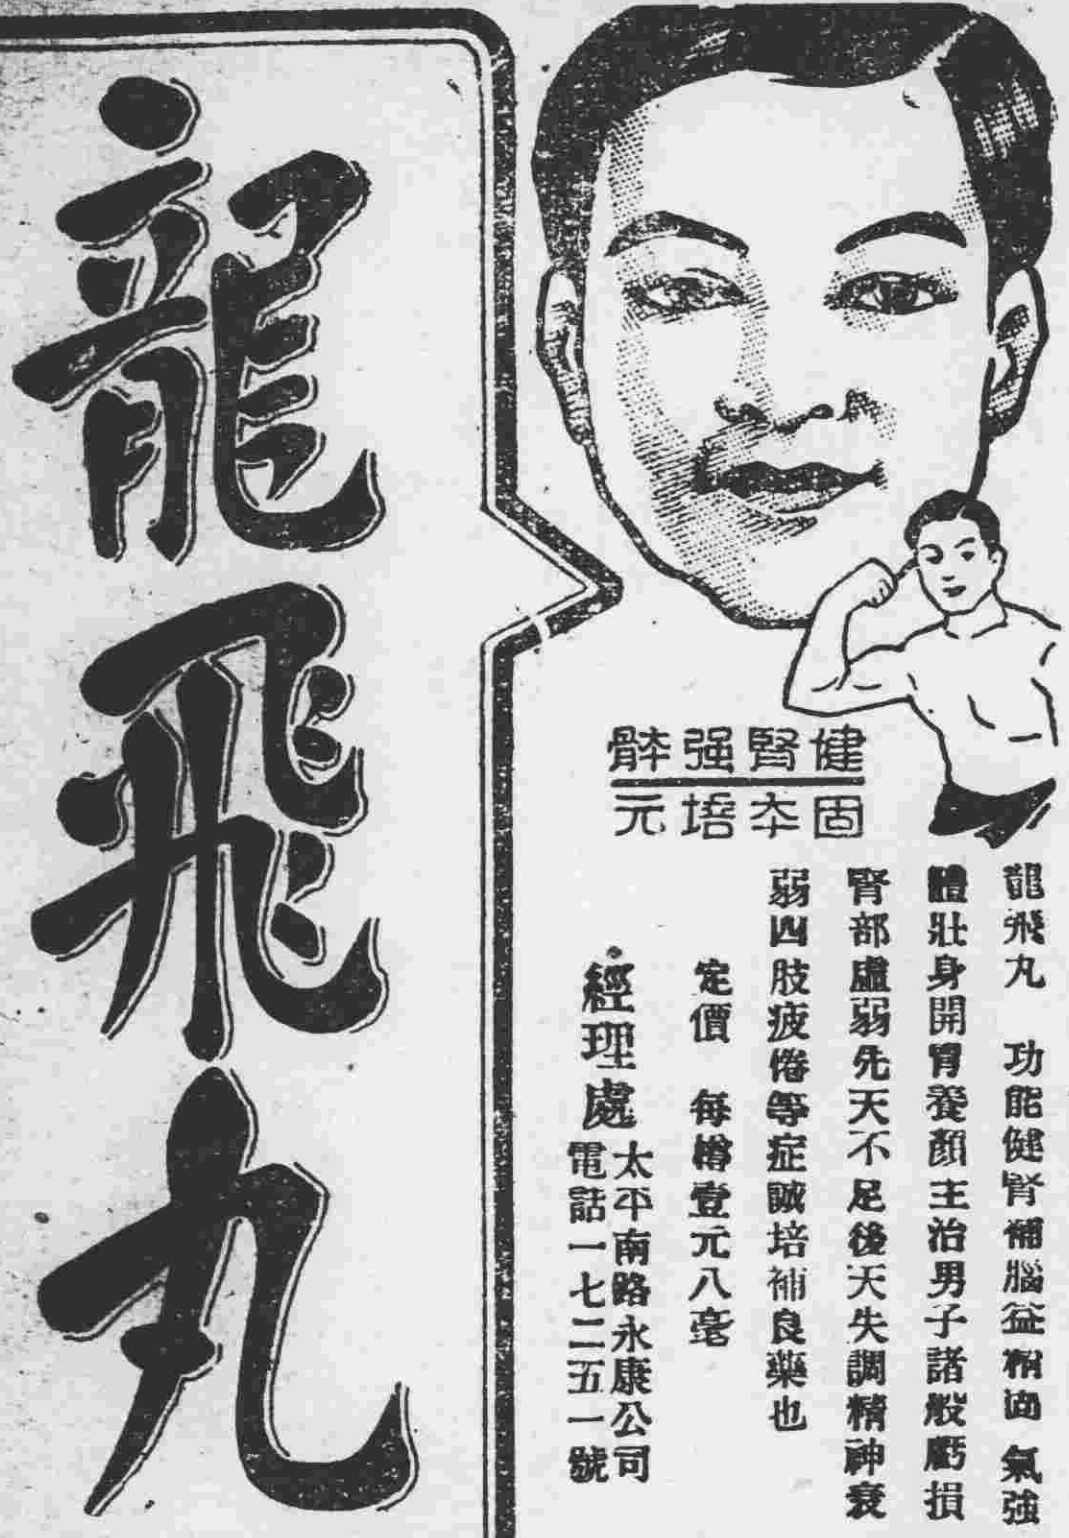 健腎强骵
固本培元
龍飛丸　功能健腎補腦益精固氣強
體壯身開胃養顏主治男子諸般虧損
腎部虛弱先天不足後天失調精神衰
弱四肢疲倦等症誠培補良藥也
定價　每樽壹元八毫
經理處
太平南路永康公司
電話一七二五一號
龍飛丸